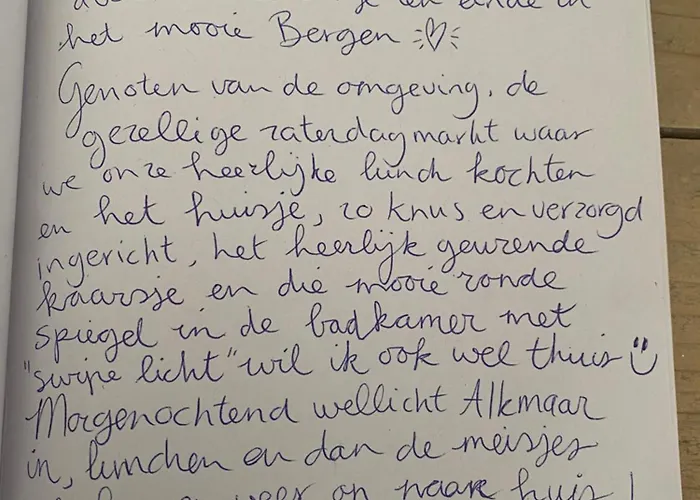 en einde in
het mooie Bergen
Genoten van de omgeving, de
gezellige zaterdagmarkt waar
we onze heerlijke lunch kochten
en het huisje, zo knus en verzorgd
ingericht, het heerlijk geurende
kaarsje en die mooie ronde
spiegel in de badkamer met
"swipe licht" wil ik ook wel thuis
Morgenochtend wellicht Alkmaar
in, lunchen en dan de meisjes
weer op naar huis!